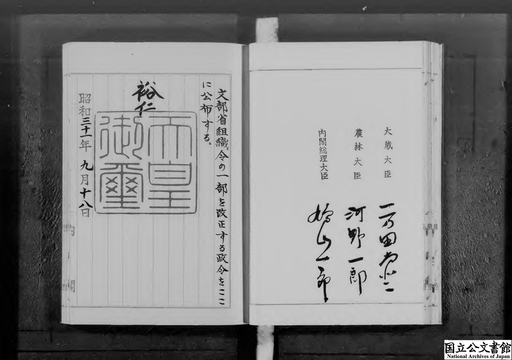 大蔵大臣
一万田尚登
農林大臣
河野一郎
内閣総理大臣
鳩山一郎
文部省組織令の一部を改正する政令をここ
に公布する。
裕仁
天皇
御璽
昭和三十一年 九月十八日
国立公文書館
National Archives of Japan